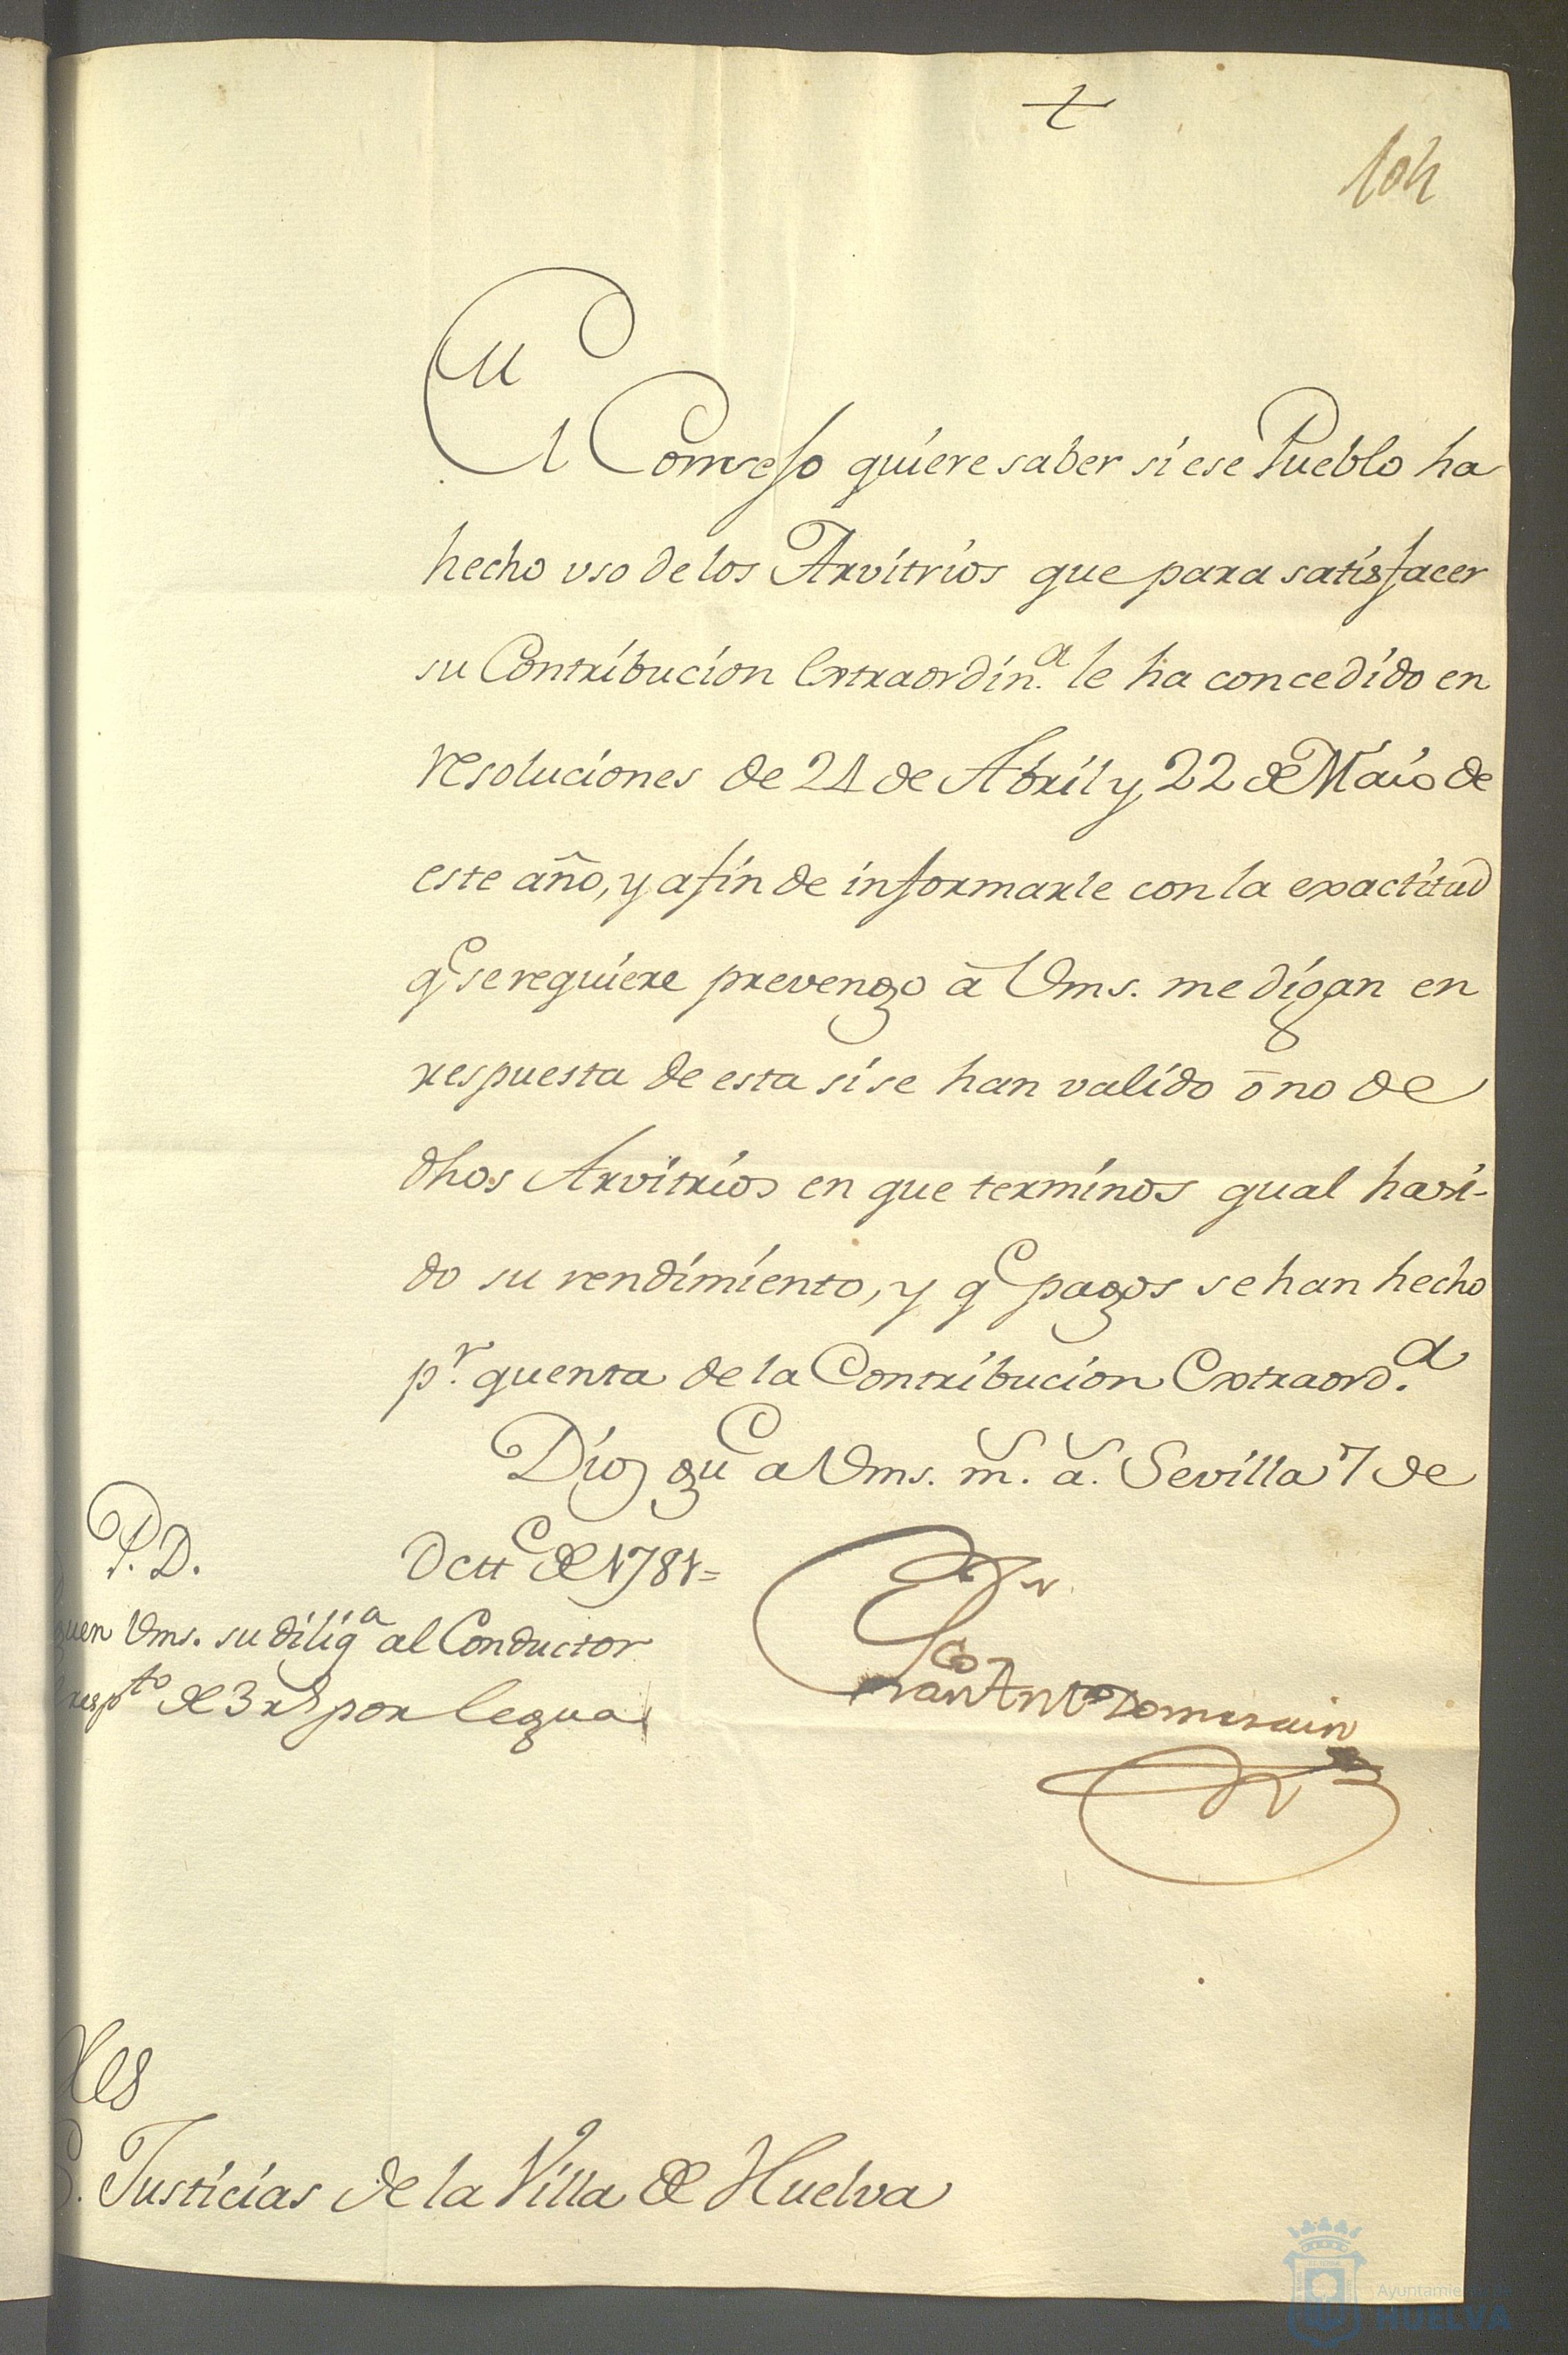 104
El Consejo quiere saber si ese Pueblo ha
hecho uso de los Arvitrios que para satisfacer
su Contribucion Extraordin.ª le ha concedido en
resoluciones de 24 de Abril y 22 de Maio de
este año, y a fin de informarle con la exactitud
q.e se requiere prevengo à Vms. me digan en
respuesta de esta si se han valido ō no de
dhos Arvitrios en que terminos qual ha si-
do su rendimiento, y q.e pagos se han hecho
p.r quenta de la Contribucion Extraord.ª
Dios gu.e a Vms. m.s a.s Sevilla 7 de
Octt.e de 1781=
P.D.
guen Vms. su dilig.ª al Conductor
resp.to de 3 rs por legua
Fran.co Ant.o Domezain
S. Justicias de la Villa de Huelva
Ayuntamie
HUELVA